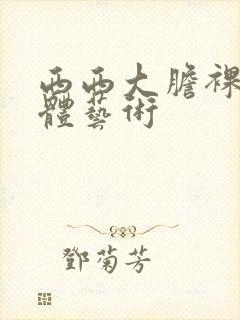 西西大膽裸
體藝術
鄧菊芳